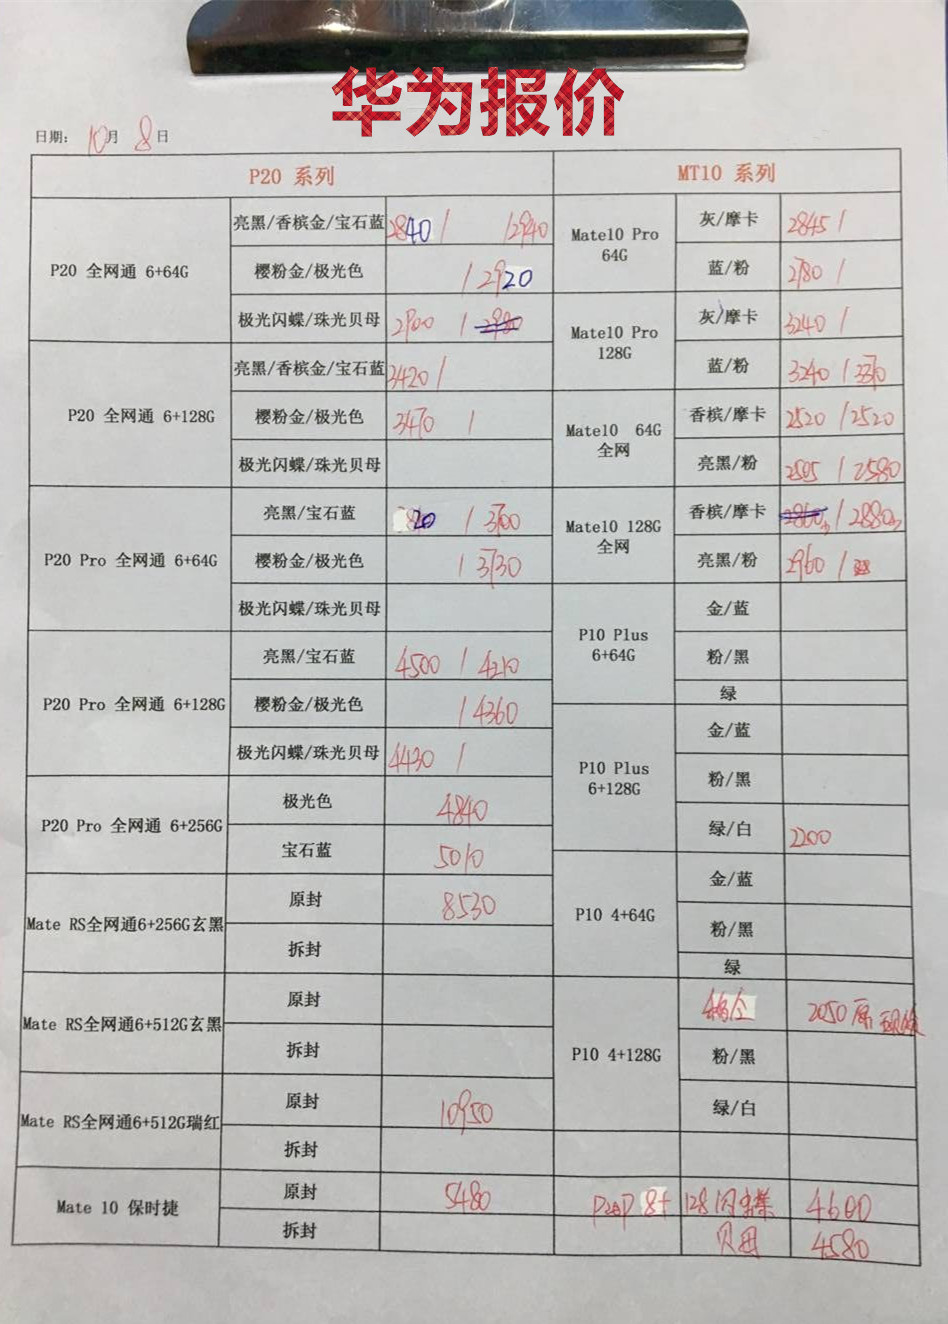 华为报价
日期: 10月 8日
P20 系列
P20 全网通 6+64G
亮黑/香槟金/宝石蓝 2840 / /2940
樱粉金/极光色 / 2920
极光闪蝶/珠光贝母 2900 /
P20 全网通 6+128G
亮黑/香槟金/宝石蓝 3420 /
樱粉金/极光色 3470 /
极光闪蝶/珠光贝母
P20 Pro 全网通 6+64G
亮黑/宝石蓝 / 3700
樱粉金/极光色 / 3730
极光闪蝶/珠光贝母
P20 Pro 全网通 6+128G
亮黑/宝石蓝 4500 / 4210
樱粉金/极光色 / 4360
极光闪蝶/珠光贝母 4430 /
P20 Pro 全网通 6+256G
极光色 4840
宝石蓝 5010
Mate RS全网通6+256G玄黑
原封 8530
拆封
Mate RS全网通6+512G玄黑
原封
拆封
Mate RS全网通6+512G瑞红
原封 10950
拆封
Mate 10 保时捷
原封 5480
拆封
MT10 系列
Mate10 Pro
64G
灰/摩卡 2845 /
蓝/粉 2780 /
Mate10 Pro
128G
灰/摩卡 3240 /
蓝/粉 3240 / 3310
Mate10 64G
全网
香槟/摩卡 2520 / 2520
亮黑/粉 2505 / 2580
Mate10 128G
全网
香槟/摩卡 2860 / 2880
亮黑/粉 2960 /
P10 Plus
6+64G
金/蓝
粉/黑
绿
P10 Plus
6+128G
金/蓝
粉/黑
绿/白 2200
P10 4+64G
金/蓝
粉/黑
绿
P10 4+128G
2050 原
粉/黑
绿/白
P20P 8+ 128 闪蝶 4600
贝母 4580